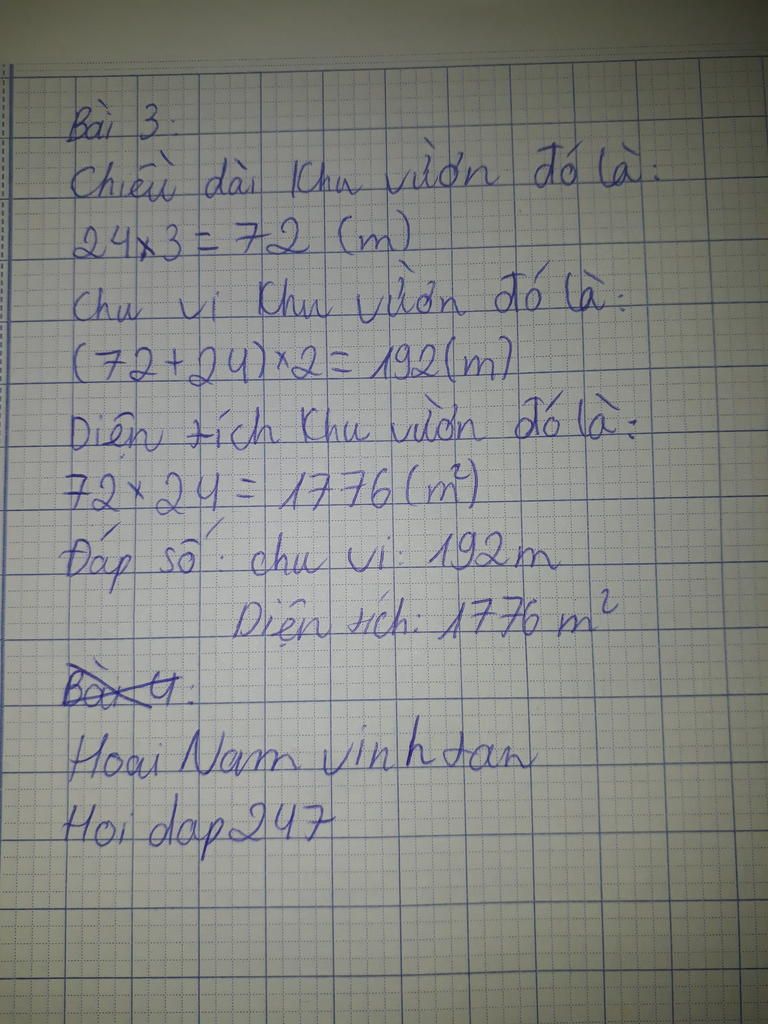 Bài 3:
Chiều dài khu vườn đó là:
24×3=72 (m)
Chu vi khu vườn đó là:
(72+24)×2=192(m)
Diện tích khu vườn đó là:
72×24=1776(m²)
Đáp số: chu vi: 192m
Diện tích: 1776 m²
Bài 4:
Hoai Nam vinh tan
Hoi dap247